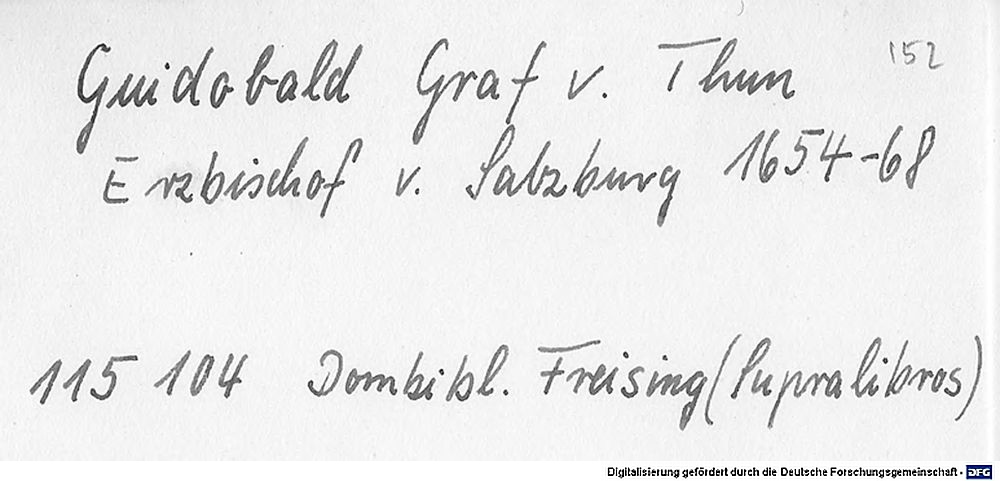 152
Guidobald Graf v. Thun
Erzbischof v. Salzburg 1654-68
115 104 Dombibl. Freising (Supralibros)
Digitalisierung gefördert durch die Deutsche Forschungsgemeinschaft - DFG